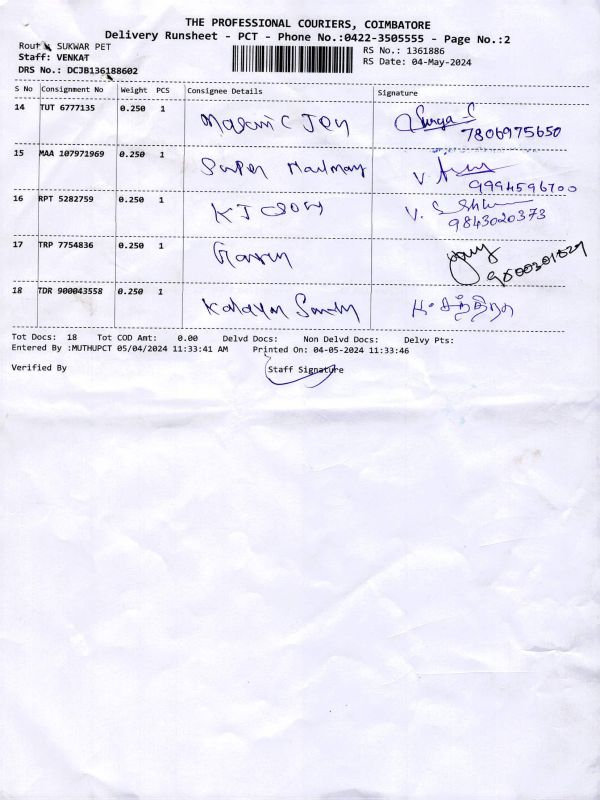 THE PROFESSIONAL COURIERS, COIMBATORE
Delivery Runsheet - PCT - Phone No.:0422-3505555 - Page No.:2
Route SUKWAR PET
RS No.: 1361886
Staff: VENKAT
RS Date: 04-May-2024
DRS No.: DCJB136188602
S No Consignment No Weight PCS Consignee Details Signature
14 TUT 6777135 0.250 1 Surya-S
7806975650
15 MAA 107971969 0.250 1 Super
9994596700
16 RPT 5282759 0.250 1 KJ
9843020373
17 TRP 7754836 0.250 1
18 TDR 900043558 0.250 1
Tot Docs: 18 Tot COD Amt: 0.00 Delvd Docs: Non Delvd Docs: Delvy Pts:
Entered By :MUTHUPCT 05/04/2024 11:33:41 AM Printed On: 04-05-2024 11:33:46
Verified By Staff Signature